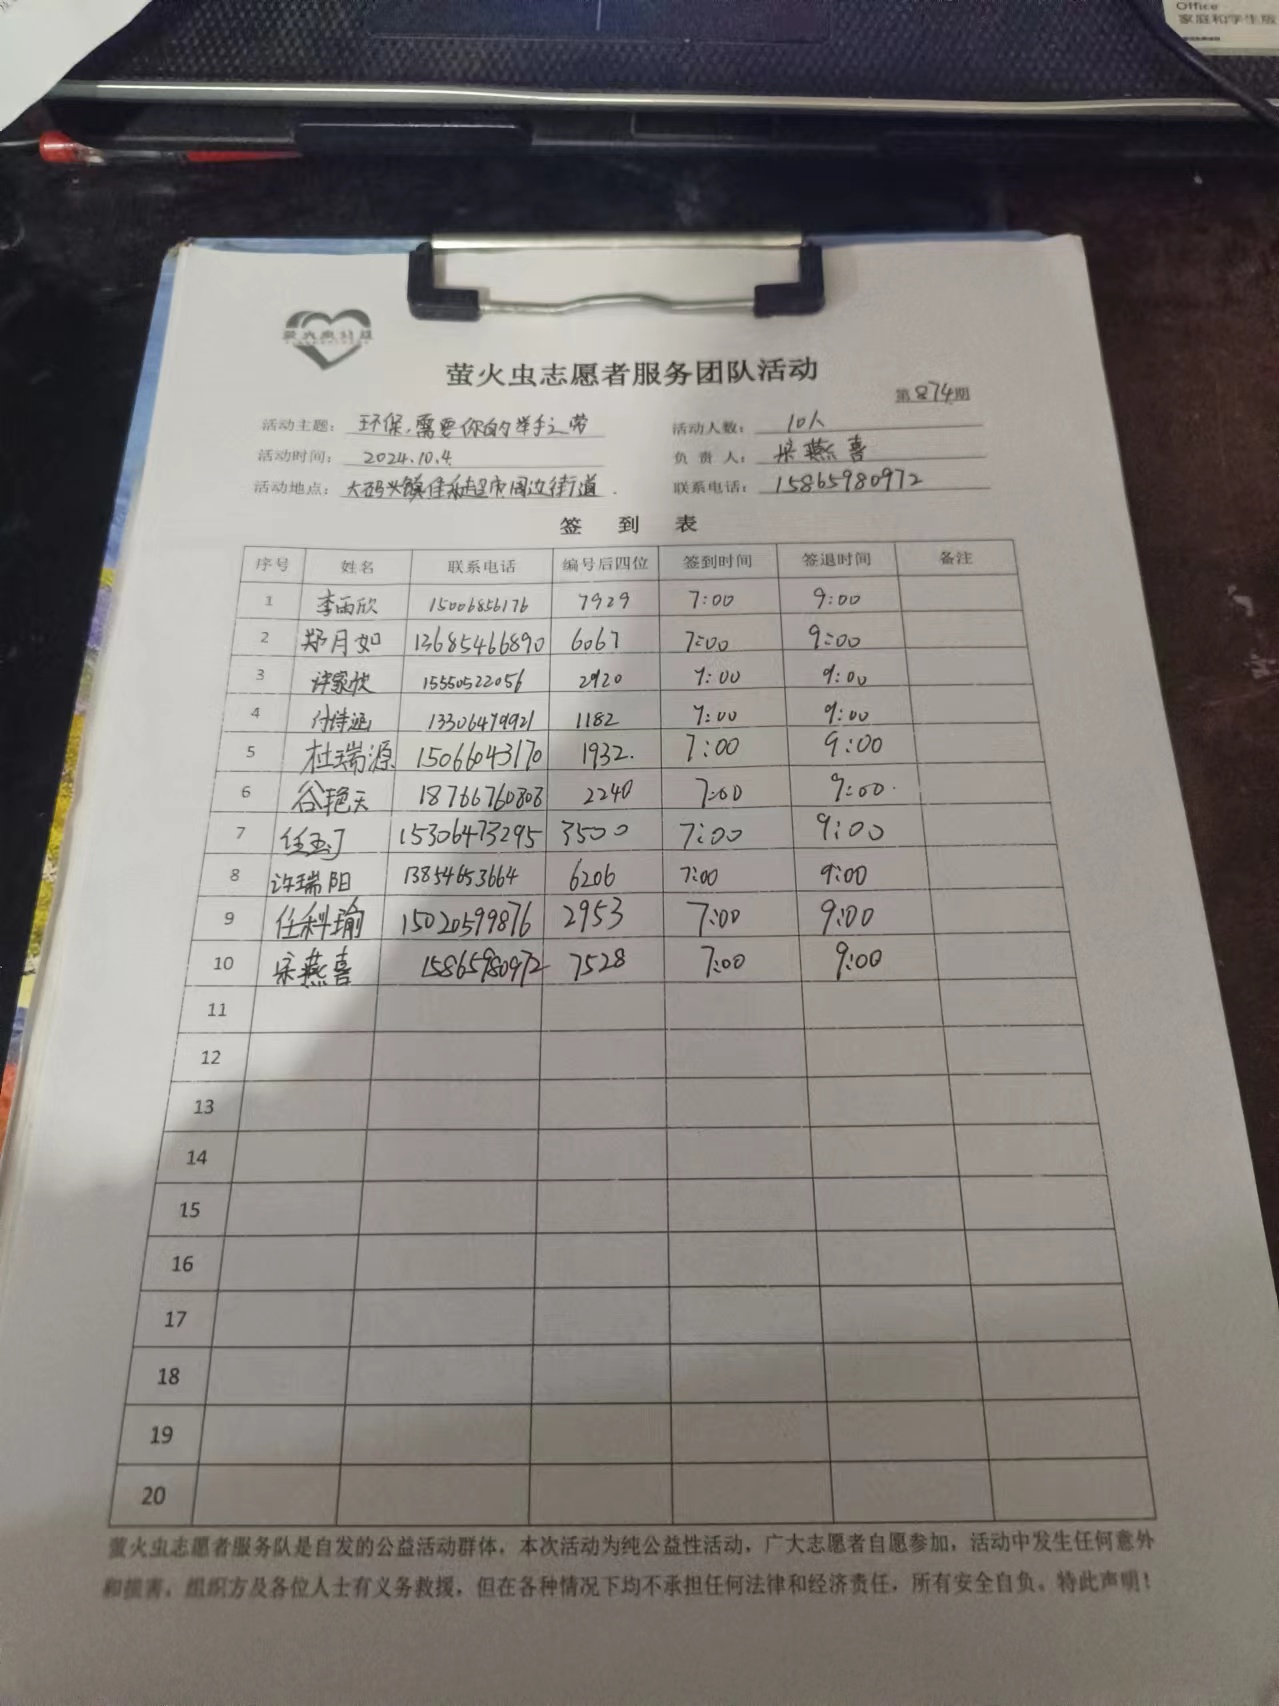 Office
家庭和学生版
萤火虫志愿者服务团队活动
第874期
活动主题：环保，需要你的举手之劳 活动人数：10人
活动时间：2024.10.4 负责人：宋燕喜
活动地点：大码头镇佳和超市周边街道 联系电话：15865980972
签到表
序号 姓名 联系电话 编号后四位 签到时间 签退时间 备注
1 李雨欣 15006856176 7929 7:00 9:00
2 郑月如 13685466890 6067 7:00 9:00
3 许家欣 15550522056 2920 7:00 9:00
4 付诗涵 13306479921 1182 7:00 9:00
5 杜瑞源 15066043170 1932. 7:00 9:00
6 谷艳天 18766760808 2240 7:00 9:00
7 任玉 15306473295 3500 7:00 9:00
8 许瑞阳 13854653664 6206 7:00 9:00
9 任科瑜 15020599876 2953 7:00 9:00
10 宋燕喜 15865980972 7528 7:00 9:00
11
12
13
14
15
16
17
18
19
20
萤火虫志愿者服务队是自发的公益活动群体，本次活动为纯公益性活动，广大志愿者自愿参加，活动中发生任何意外
和损害，组织方及各位人士有义务救援，但在各种情况下均不承担任何法律和经济责任，所有安全自负。特此声明！